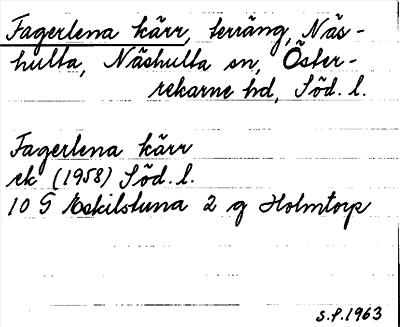 Fagerlena kärr, terräng, Näs-
hulta, Näshulta sn, Öster-
rekarne hd, Söd. l.
Fagerlena kärr
ek (1958) Söd. l.
10 G Eskilstuna 2 g Holmtorp
S.P. 1963